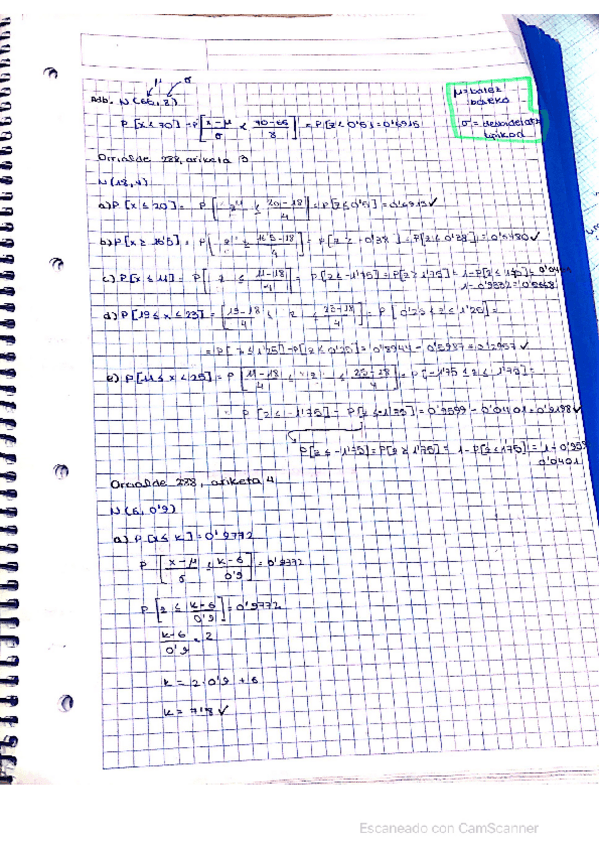 μ σ
Adb. N(66,8)
μ = batez besteko
σ = desbideratze tipikoa
P[x < 70] = P[x-μ/σ < 70-66/8] = P[z < 0'5] = 0'6915
Orrialde 288, ariketa 3
N(18,4)
a) P[x ≤ 20] = P[z ≤ 20-18/4] = P[z ≤ 0'5] = 0'6915 ✓
b) P[x ≥ 16'5] = P[z ≥ 16'5-18/4] = P[z ≥ -0'38] = P[z ≤ 0'38] = 0'6480 ✓
c) P[x ≤ 11] = P[z ≤ 11-18/4] = P[z ≤ -1'75] = P[z ≥ 1'75] = 1-P[z ≤ 1'75] =
d) P[19 ≤ x ≤ 23] = [19-18/4 ≤ z ≤ 23-18/4] = P[0'25 ≤ z ≤ 1'25] =
= P[z ≤ 1'25] - P[z ≤ 0'25] = 0'8944 - 0'5987 = 0'2957 ✓
e) P[11 ≤ x < 25] = P[11-18/4 ≤ z ≤ 25-18/4] = P[-1'75 ≤ z ≤ 1'75] =
= P[z ≤ 1'75] - P[z ≤ -1'75] = 0'9599 - 0'0401 = 0'9198 ✓
P[z ≤ -1'75] = P[z ≥ 1'75] = 1-P[z ≤ 1'75] = 1-0'959
0'0401
Orrialde 288, ariketa 4
N(6, 0'9)
a) P[x ≤ k] = 0'9772
P[x-μ/σ ≤ k-6/0'9] = 0'9772
P[z ≤ k-6/0'9] = 0'9772
k-6/0'9 = 2
k = 2·0'9 + 6
k = 7'8 ✓
Escaneado con CamScanner